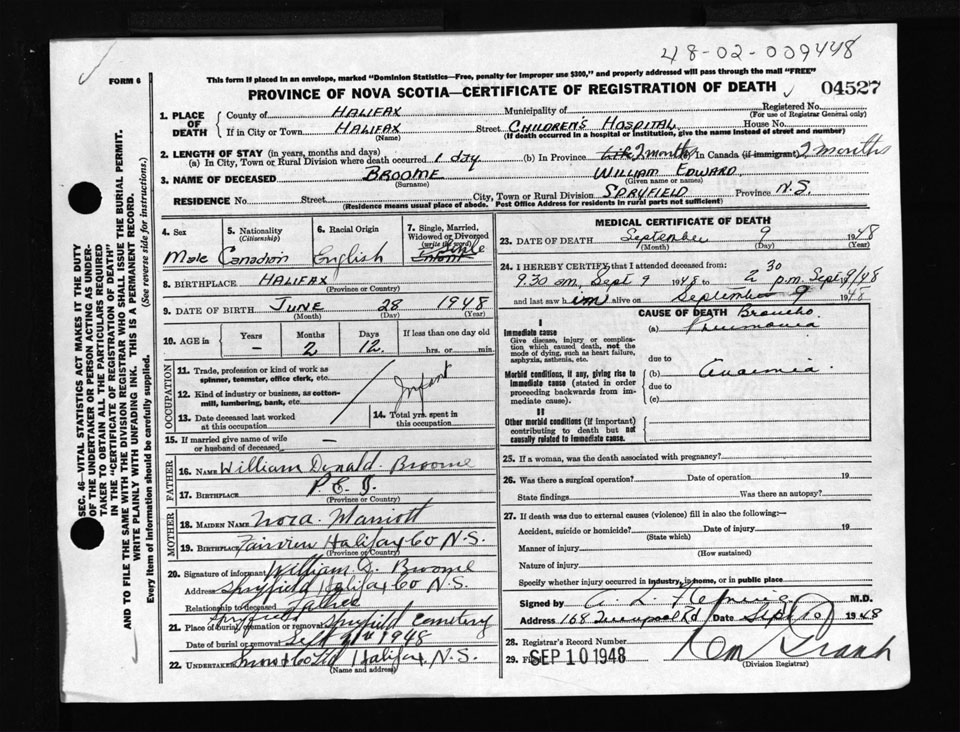 48-02-009448
FORM 6
This form if placed in an envelope, marked "Dominion Statistics—Free, penalty for improper use $300," and properly addressed will pass through the mail "FREE"
PROVINCE OF NOVA SCOTIA—CERTIFICATE OF REGISTRATION OF DEATH
04527
SEC. 46—VITAL STATISTICS ACT MAKES IT THE DUTY
OF THE UNDERTAKER OR PERSON ACTING AS UNDER-
TAKER TO OBTAIN ALL THE PARTICULARS REQUIRED
IN THE "CERTIFICATE OF REGISTRATION OF DEATH"
AND TO FILE THE SAME WITH THE DIVISION REGISTRAR WHO SHALL ISSUE THE BURIAL PERMIT.
WRITE PLAINLY WITH UNFADING INK. THIS IS A PERMANENT RECORD.
Every item of information should be carefully supplied. (See reverse side for instructions.)
1. PLACE OF DEATH
County of HALIFAX Municipality of Registered No.
(For use of Registrar General only)
If in City or Town HALIFAX Street CHILDREN'S HOSPITAL House No.
(Name) (If death occurred in a hospital or institution, give the name instead of street and number)
2. LENGTH OF STAY (in years, months and days)
(a) In City, Town or Rural Division where death occurred 1 day (b) In Province Life 2 months In Canada (if immigrant) 2 months
3. NAME OF DECEASED BROOME WILLIAM EDWARD
(Surname) (Given name or names)
RESIDENCE No. Street City, Town or Rural Division SPRYFIELD Province N.S.
(Residence means usual place of abode. Post Office Address for residents in rural parts not sufficient)
4. Sex
Male
5. Nationality
(Citizenship)
Canadian
6. Racial Origin
English
7. Single, Married,
Widowed or Divorced
(write the word)
Single
Infant
8. BIRTHPLACE HALIFAX
(Province or Country)
9. DATE OF BIRTH JUNE 28 1948
(Month) (Day) (Year)
10. AGE in Years Months Days If less than one day old
– 2 12 hrs. or min.
OCCUPATION
11. Trade, profession or kind of work as
spinner, teamster, office clerk, etc.
12. Kind of industry or business, as cotton-
mill, lumbering, bank, etc.
Infant
13. Date deceased last worked
at this occupation
14. Total yrs. spent in
this occupation
15. If married give name of wife
or husband of deceased –
FATHER
16. NAME William Donald Broome
17. BIRTHPLACE P.E.I.
(Province or Country)
MOTHER
18. MAIDEN NAME Nora Marriott
19. BIRTHPLACE Fairview Halifax Co N.S.
(Province or Country)
20. Signature of informant William D. Broome
Address Spryfield Halifax Co N.S.
Relationship to deceased Father
21. Place of burial, cremation or removal Spryfield Spryfield Cemetery
Date of burial or removal Sept 1948
22. UNDERTAKER Snow & Co Ltd Halifax, N.S.
MEDICAL CERTIFICATE OF DEATH
23. DATE OF DEATH September 9 1948
(Month) (Day) (Year)
24. I HEREBY CERTIFY that I attended deceased from:
9.30 am, Sept 9 1948 to 2 30 p.m. Sept 9/48
and last saw him alive on September 9 1948
CAUSE OF DEATH
I
Immediate cause
Give disease, injury or complica-
tion which caused death, not the
mode of dying, such as heart failure,
asphyxia, asthenia, etc.
(a) Broncho
Pneumonia
due to
Morbid conditions, if any, giving rise to
immediate cause (stated in order
proceeding backwards from im-
mediate cause).
(b) Anaemia
due to
(c)
II
Other morbid conditions (if important)
contributing to death but not
causally related to immediate cause.
25. If a woman, was the death associated with pregnancy?
26. Was there a surgical operation? Date of operation 19
State findings Was there an autopsy?
27. If death was due to external causes (violence) fill in also the following:—
Accident, suicide or homicide? Date of injury 19
(State which)
Manner of injury
(How sustained)
Nature of injury
Specify whether injury occurred in industry, in home, or in public place
Signed by A. L. Fleming M.D.
Address 168 Rd Date Sept 10 1948
28. Registrar's Record Number
29. SEP 10 1948
(Division Registrar)